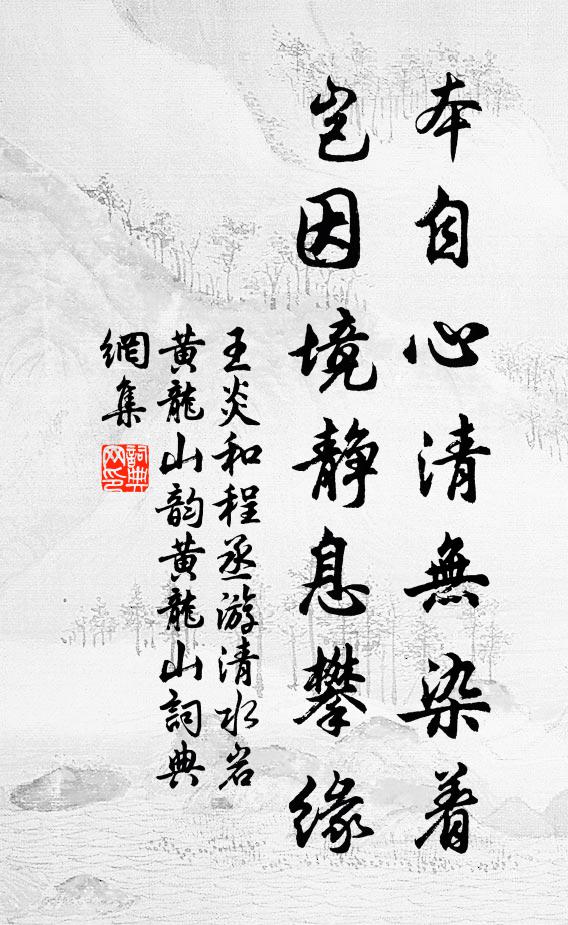 本自心清無染着
岂因境静息攀緣
王炎和程丞游清水岩
黄龍山韵黄龍山詞典
網集
詞典
网印